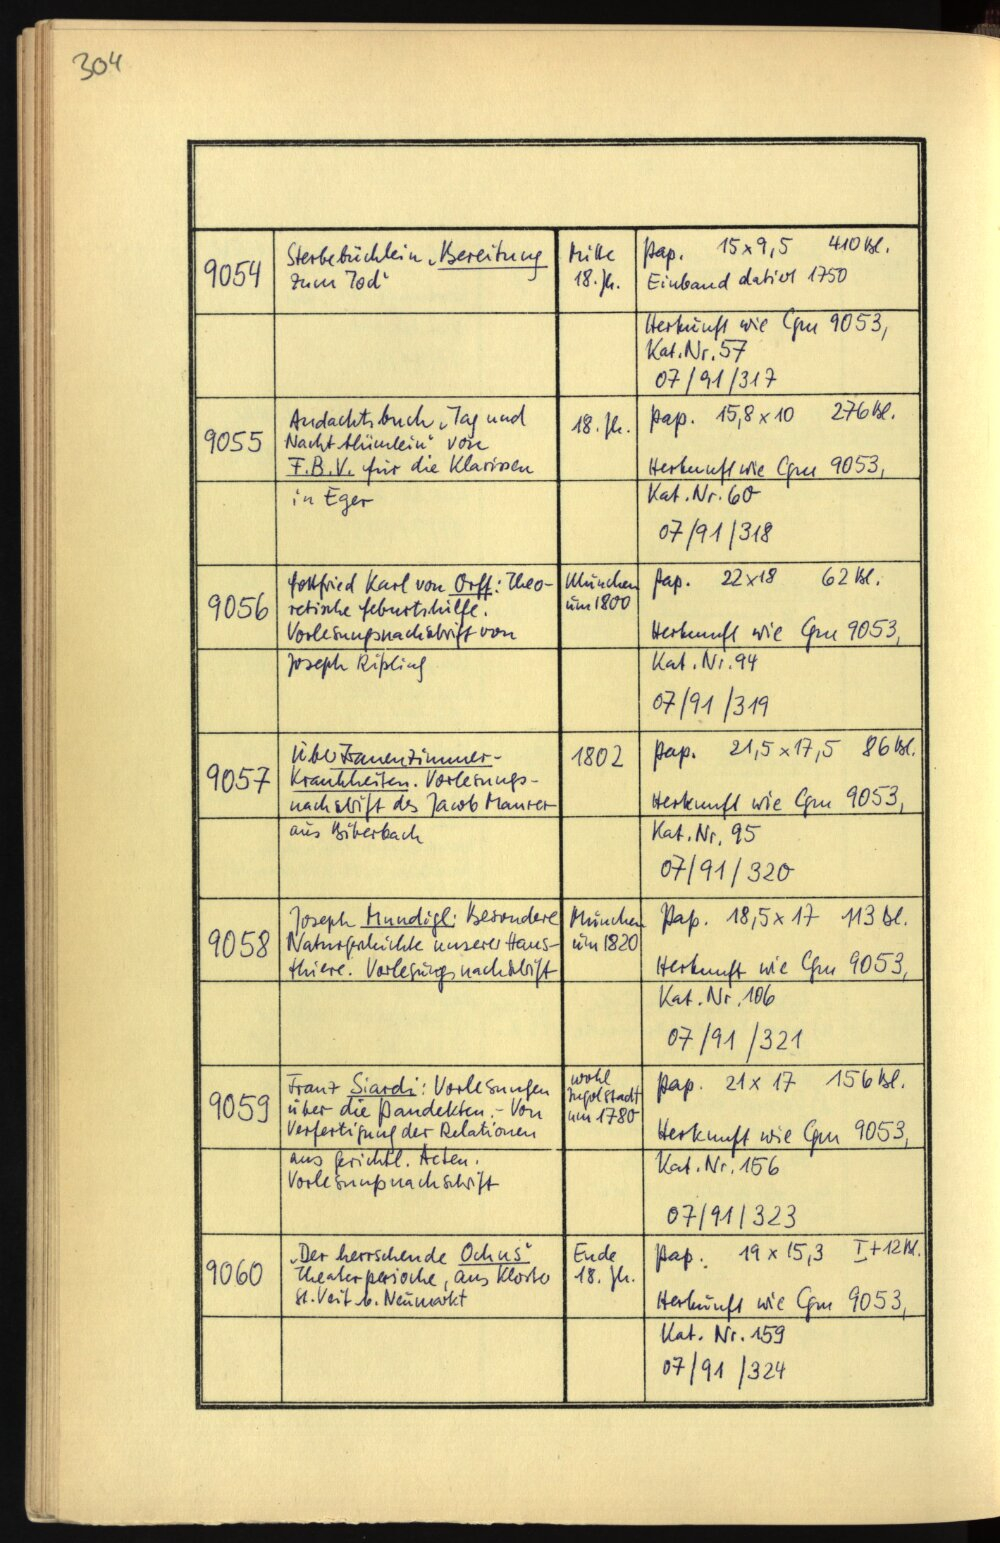 304
9054
Sterbebüchlein „Bereitung
zum Tod"
Mitte
18. Jh.
Pap. 15 x 9,5 410 Bl.
Einband datiert 1750
Herkunft wie Cgm 9053,
Kat. Nr. 57
07/91/317
9055
Andachtsbuch „Tag und
Nacht blümlein" von
F.B.V. für die Klarissen
in Eger
18. Jh.
Pap. 15,8 x 10 276 Bl.
Herkunft wie Cgm 9053,
Kat. Nr. 60
07/91/318
9056
Gottfried Karl von Orff: Theo-
retische Geburtshilfe.
Vorlesungsnachschrift von
Joseph Rißling
München
um 1800
Pap. 22 x 18 62 Bl.
Herkunft wie Cgm 9053,
Kat. Nr. 94
07/91/319
9057
Über Frauenzimmer-
Krankheiten. Vorlesungs-
nachschrift des Jacob Maurer
aus Biberbach
1802
Pap. 21,5 x 17,5 86 Bl.
Herkunft wie Cgm 9053,
Kat. Nr. 95
07/91/320
9058
Joseph Mundigl: Besondere
Naturgeschichte unserer Haus-
thiere. Vorlesungsnachschrift
München
um 1820
Pap. 18,5 x 17 113 Bl.
Herkunft wie Cgm 9053,
Kat. Nr. 106
07/91/321
9059
Franz Siardi: Vorlesungen
über die Pandekten. - Von
Verfertigung der Relationen
aus gerichtl. Acten.
Vorlesungsnachschrift
wohl
Ingolstadt
um 1780
Pap. 21 x 17 156 Bl.
Herkunft wie Cgm 9053,
Kat. Nr. 156
07/91/323
9060
„Der herrschende Ochus"
Theaterperioche, aus Kloster
St. Veit b. Neumarkt
Ende
18. Jh.
Pap. 19 x 15,3 I + 12 Bl.
Herkunft wie Cgm 9053,
Kat. Nr. 159
07/91/324